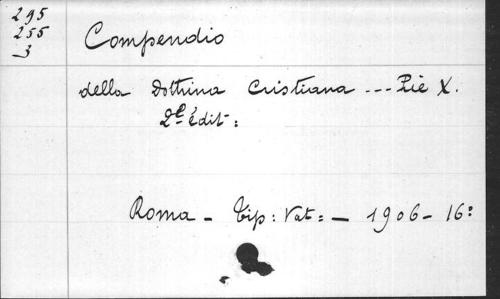 295
255
3
Compendio
della Dottrina Cristiana --- Pie X.
2e édit:
Roma - Tip: Vat: - 1906 - 16: